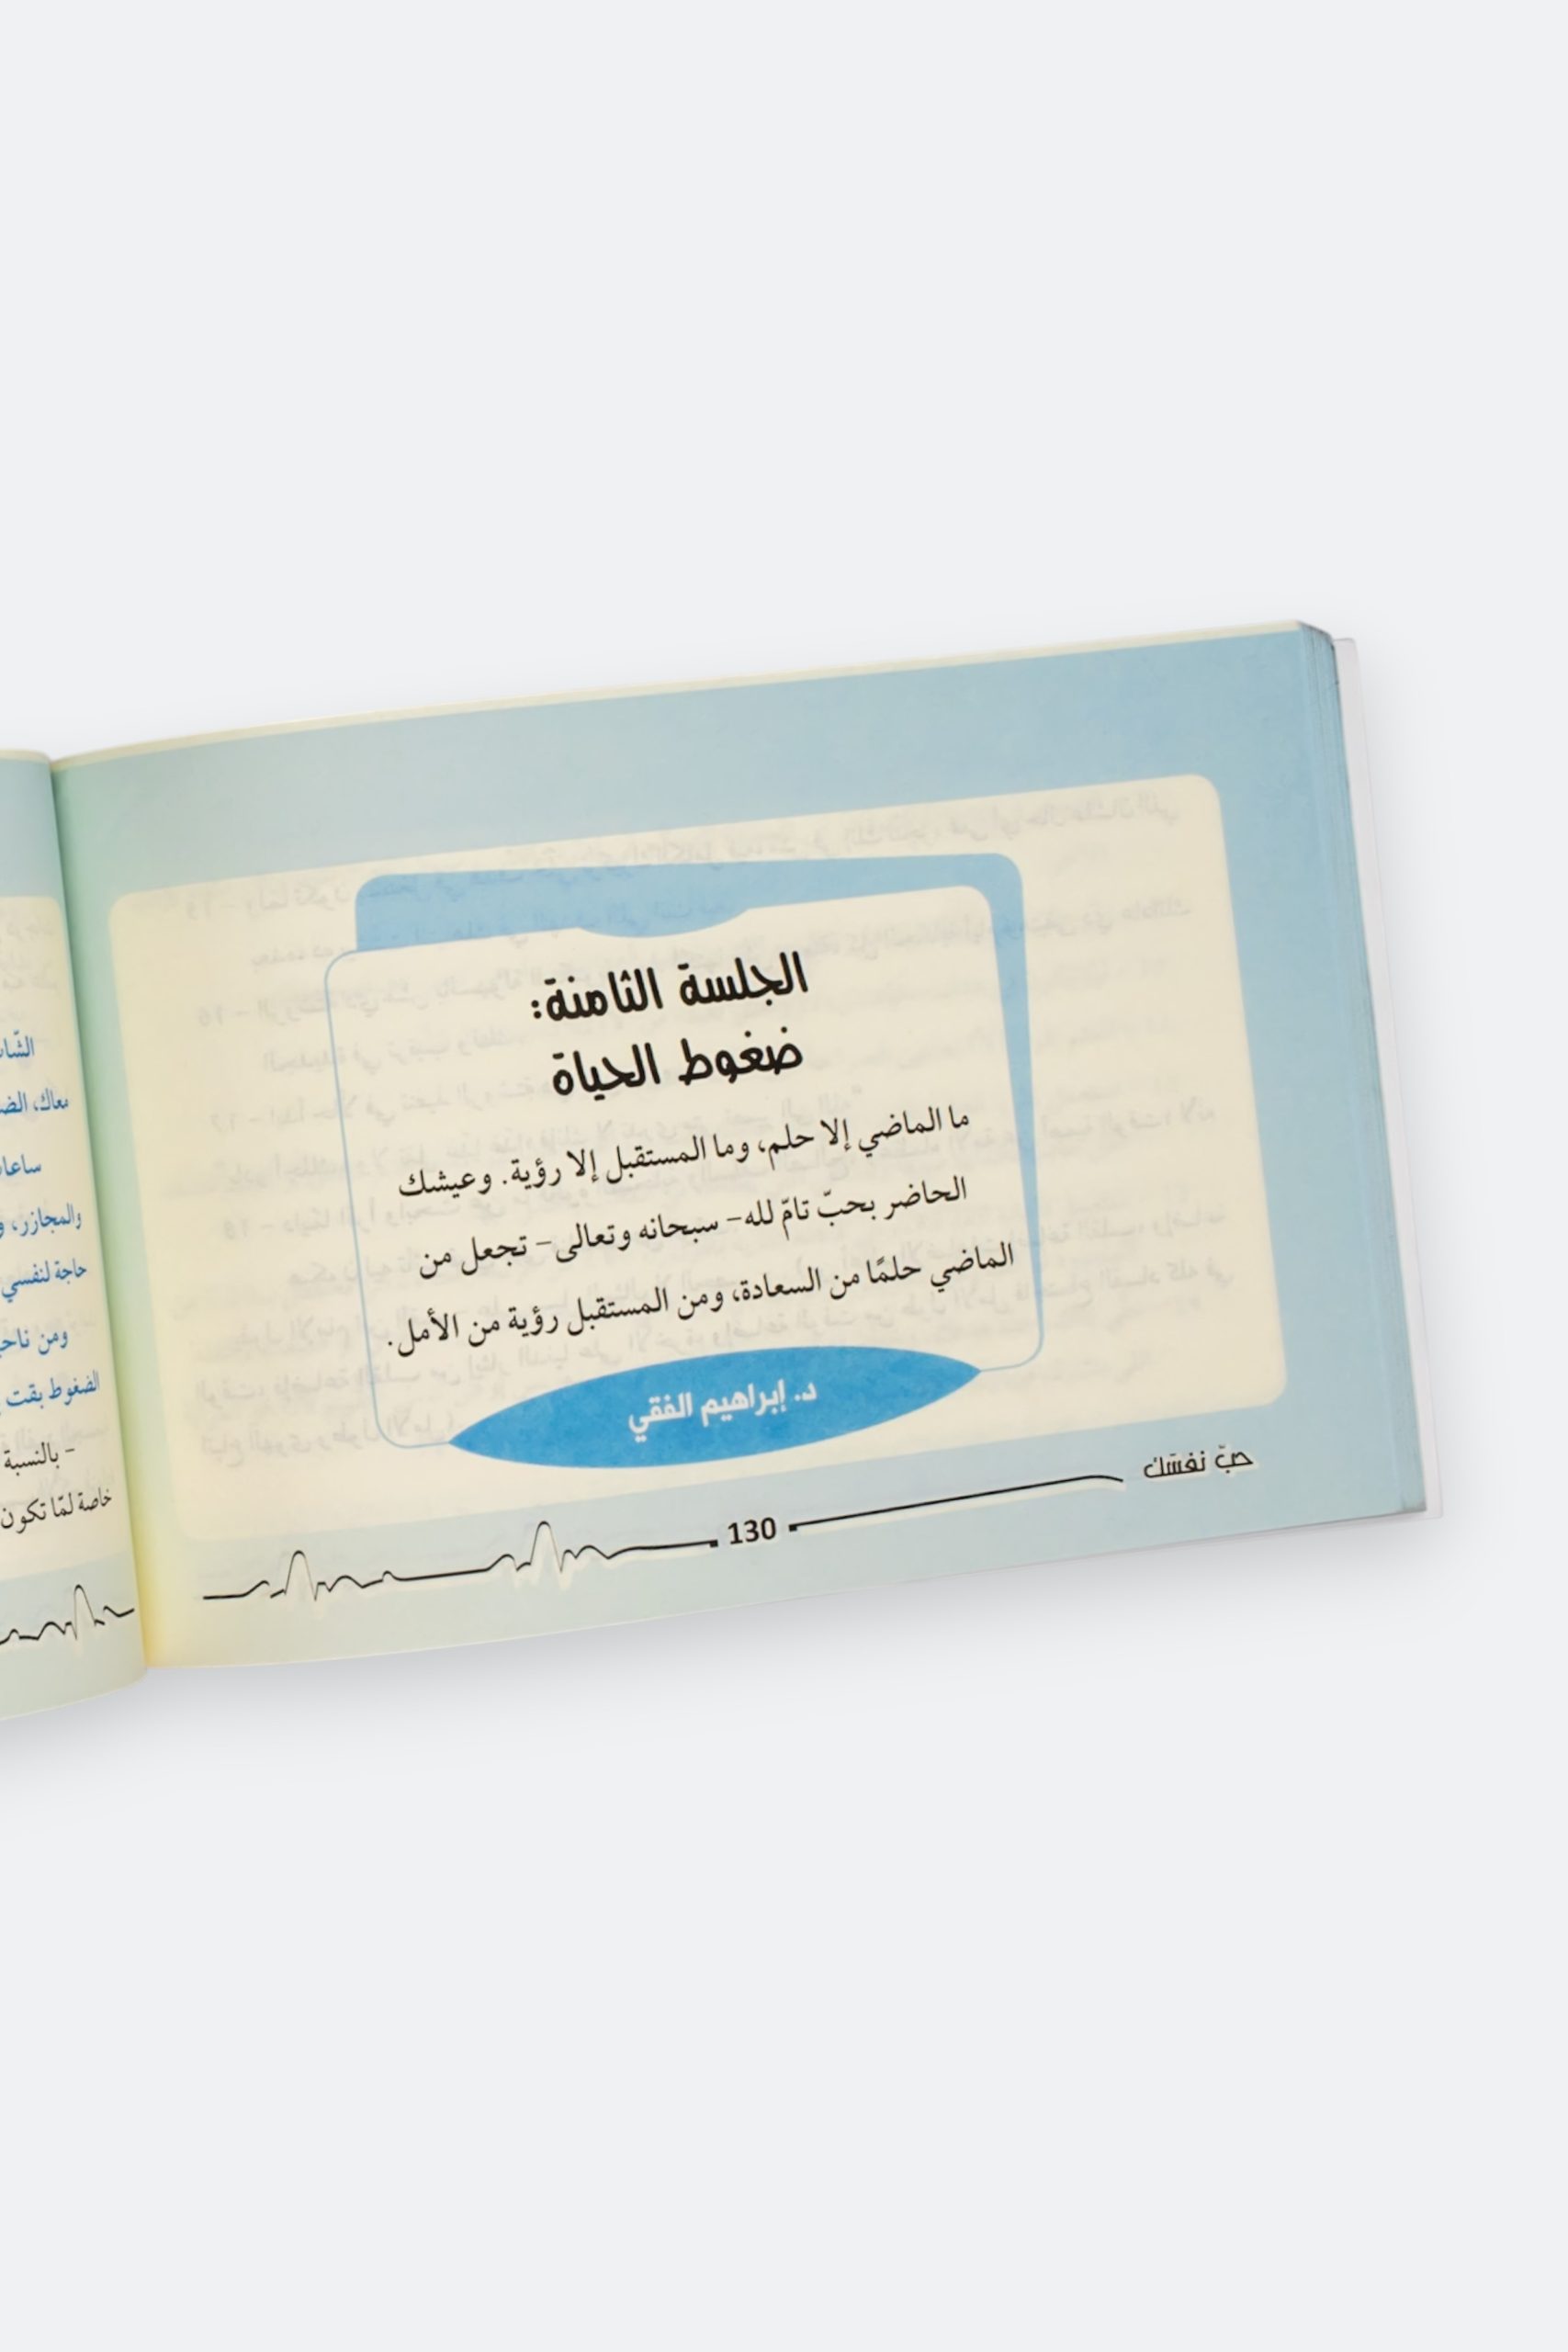 الجلسة الثامنة:
ضغوط الحياة
ما الماضي إلا حلم، وما المستقبل إلا رؤية. وعيشك
الحاضر بحبّ تامّ لله- سبحانه وتعالى- تجعل من
الماضي حلمًا من السعادة، ومن المستقبل رؤية من الأمل.
د. إبراهيم الفقي
حبّ نفسك
130
معاك، الضـ
والمجازر، و
حاجة لنفسي
ومن ناحيـ
الضغوط بقت
- بالنسبة
خاصة لمّا تكون